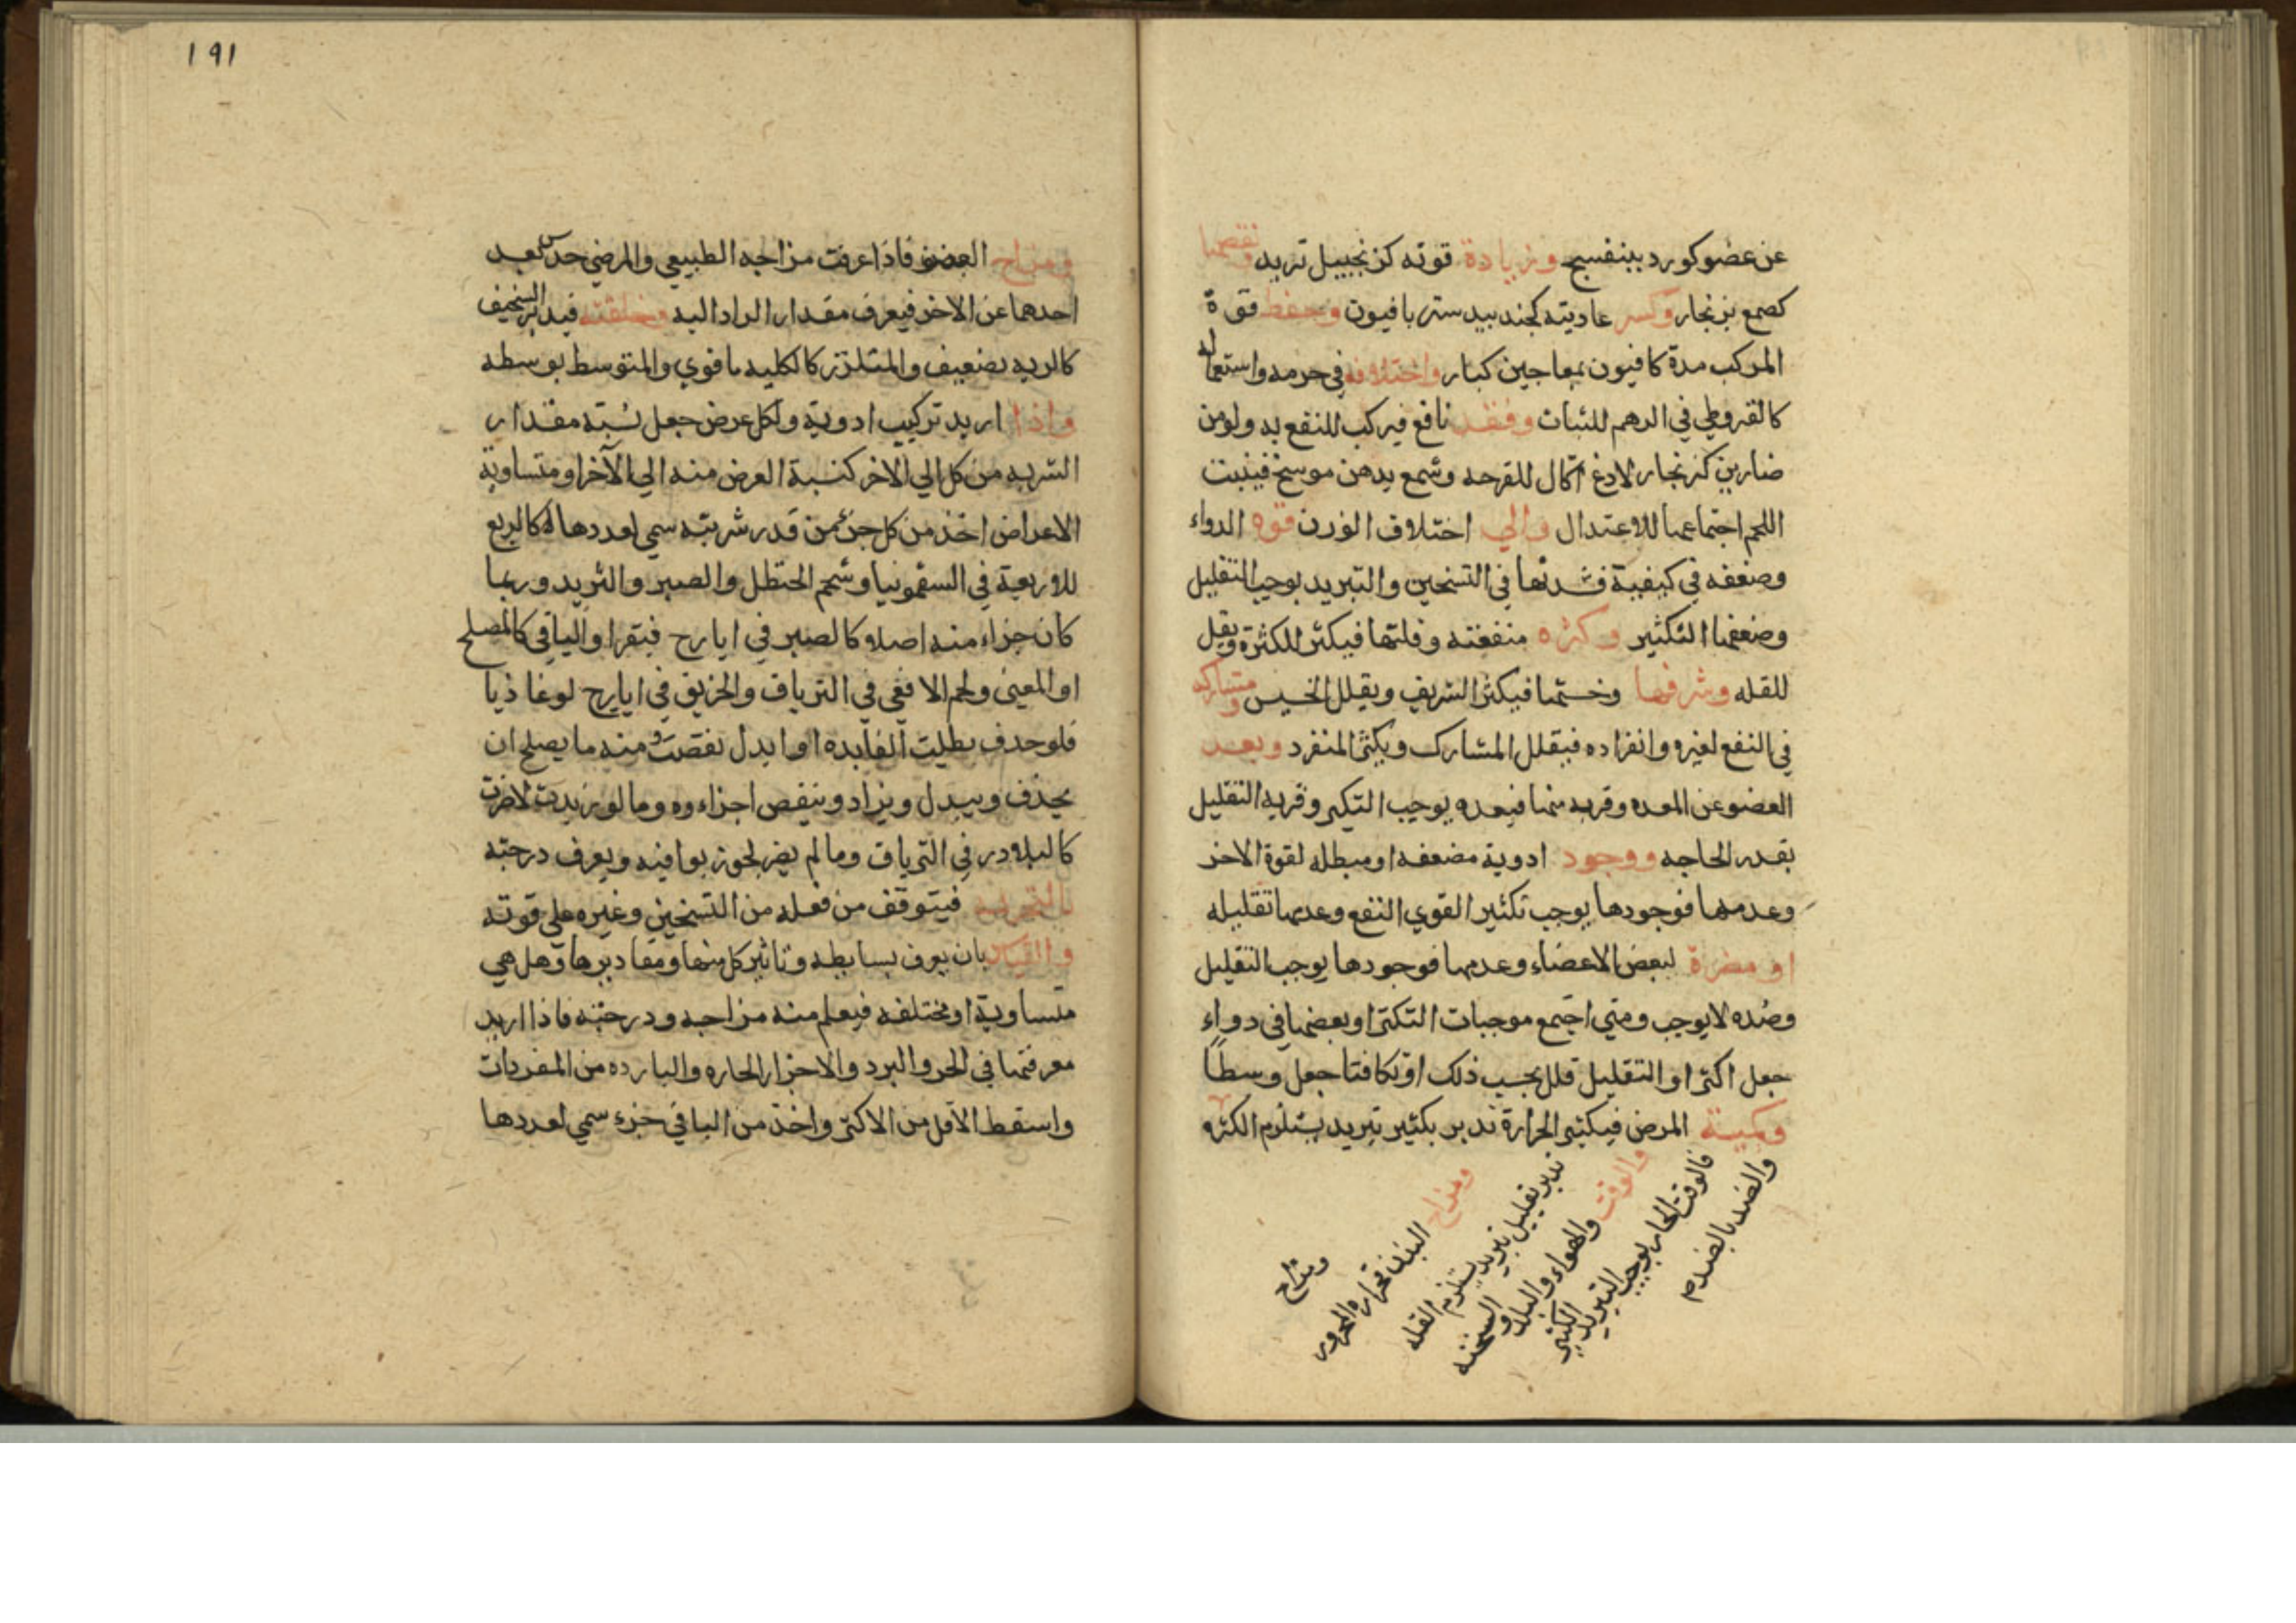 عن عضو كورد ببنفسج وزيادة قوته كزنجبيل تربد ونقصها
كصمع بزنجار وكسر عاديته كجندبيدستر بافيون وحفظ قوة
المركب مدة كافيون بمعاجين كبار واختلافه في جرمه واستعماله
كالقروطي في الدهم للثبات وفقد نافع فيركب للنفع به ولو من
ضارين كزنجار لادغ اكال للقرحه وشمع بدهن موسخ فينبت
اللحم اجتماعهما للاعتدال والي اختلاف الوزن قوه الدواء
وضعفه في كيفية فشدتها في التسخين والتبريد يوجب التقليل
وضعفها التكثير وكثره منفعته وقلتها فيكثر للكثرة ويقل
للقله وشرفها وخستها فيكثر الشريف ويقلل الخسيس ومشاركه
في النفع لغيره وانفراده فيقلل المشارك ويكثر المنفرد وبعد
العضو عن المعده وقربه منها فبعده يوجب التكير وقربه التقليل
بقدر الحاجه ووجود ادوية مضعفه او مبطله لقوة الاخر
وعدمها فوجودها يوجب تكثير القوي النفع وعدمها تقليله
او مضرة لبعض الاعضاء وعدمها فوجودها يوجب التقليل
وضده لا يوجب ومتي اجتمع موجبات التكثر او بعضها في دواء
جعل اكثر او التقليل قلل بحسب ذلك او تكافتا جعل وسطا
وكمية المرض فيكثير الحرارة تدبر بكثير تبريد يستلزم الكثره
والضد بالضدم
فالوقت الحار يوجب التبريد الكثير
والوقت والهواء والبلد والسحنه
تدبر تقليل تبريد يستلزم القله
ومزاج البدن فحراره المحرور
ومزاج
١٩١
ومزاج العضو فاذا عرفت مزاجه الطبيعي والمرضي حدس بعد
احدهما عن الاخر فيعرف مقدار الراد اليه وخلقته فيدبر السخيف
كالريه بضعيف والمتلزز كالكليه بقوي والمتوسط بوسطه
واذا اريد تركيب ادوية ولكل عرض جعل نسبة مقدار
الشربه من كل الي الاخر كنسبة العرض منه الي الآخر او متساوية
الاعراض اخذ من كل جزء من قدر شربته سمي لعددها كالربع
للاربعة في السقمونيا وشحم الحنظل والصبر والتربد وربما
كان جزاء منه اصلا كالصبر في ايارج فيقرا والباقي كالمصلح
او المعين ولحم الافعي في الترياق والخربق في ايارج لوغاذيا
فلو حذف بطلت الفايده او ابدل نقصت ومنه ما يصلح ان
يحذف ويبدل ويزاد وينقص اجزاءوه وما لو زيدت لاضرت
كالبلادر في الترياق وما لم يضر لجوز بوا فيه ويعرف درجته
بالتجربه فيتوقف من فعله من التسخين وغيره علي قوته
والقياس بان يعرف بسايطه وتاثير كل منها ومقاديرها وهل هي
متساوية او مختلفه فيعلم منه مزاجه ودرجته فاذا اريد
معرفتها في الحر والبرد والاجزا الحاره والبارده من المفردات
واسقط الاقل من الاكثر واخذ من الباقي جزء سمي لعددها